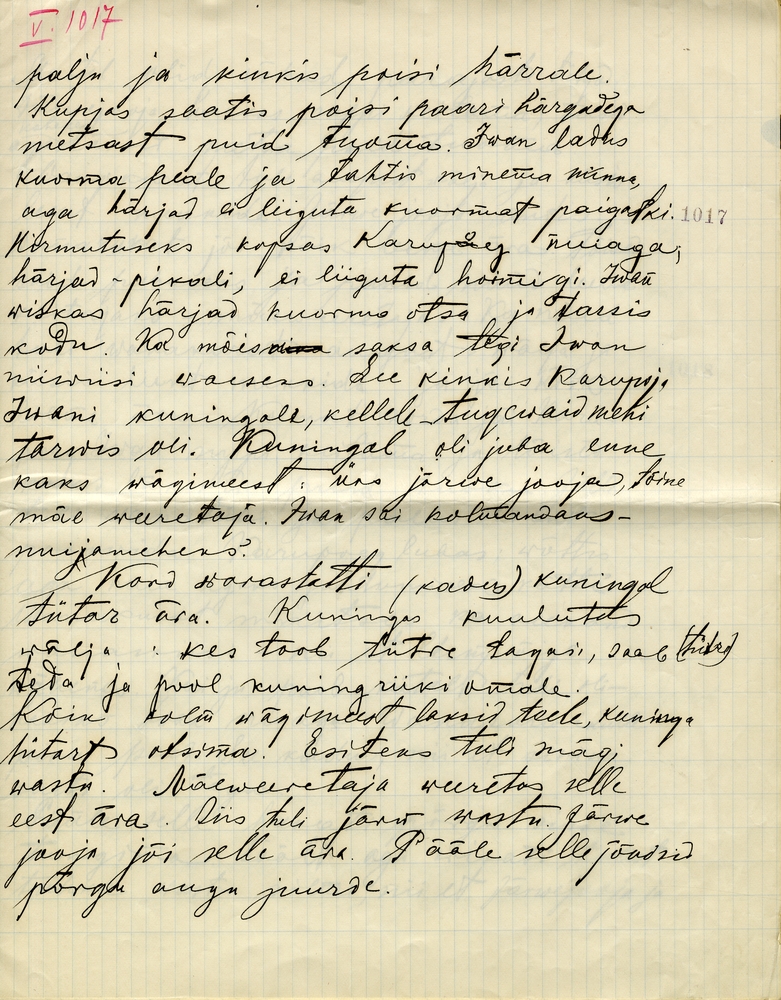 V. 1017
palju ja kinkis poisi härrale.
Kupjas saatis poisi paari härgadega
metsast puid tuoma. Iwan ladus
kuorma peale ja tahtis minema minna,
aga härjad ei liiguta kuormat paigastki. 1017
Hirmutuseks kopsas Karupoeg nuiaga;
härjad - pikali, ei liiguta hoimigi. Iwan
wiskas härjad kuorma otsa ja tassis
kodu. Ka mõisa saksa tegi Iwan
niiwiisi waeseks. See kinkis Karupoja
Iwani kuningale, kellele tugewaid mehi
tarwis oli. Kuningal oli juba enne
kaks wägimeest: üks järwe jooja, tõine
mäe weeretaja. Iwan sai kolmandaks -
nuijameheks.
Kord warastatti (kadus) kuningal
tütar ära. Kuningas kuulutas
wälja: kes toob tütre tagasi, saab (tütre)
teda ja pool kuningriiki omale.
Kõik kolm wägimeest läksid teele, kuninga
tütart otsima. Esiteks tuli mägi
wastu. Mäeweeretaja weeretas selle
eest ära. Siis tuli järw wastu. Järwe
jooja jõi selle ära. Pääle selle jõudsid
põrgu augu juurde.